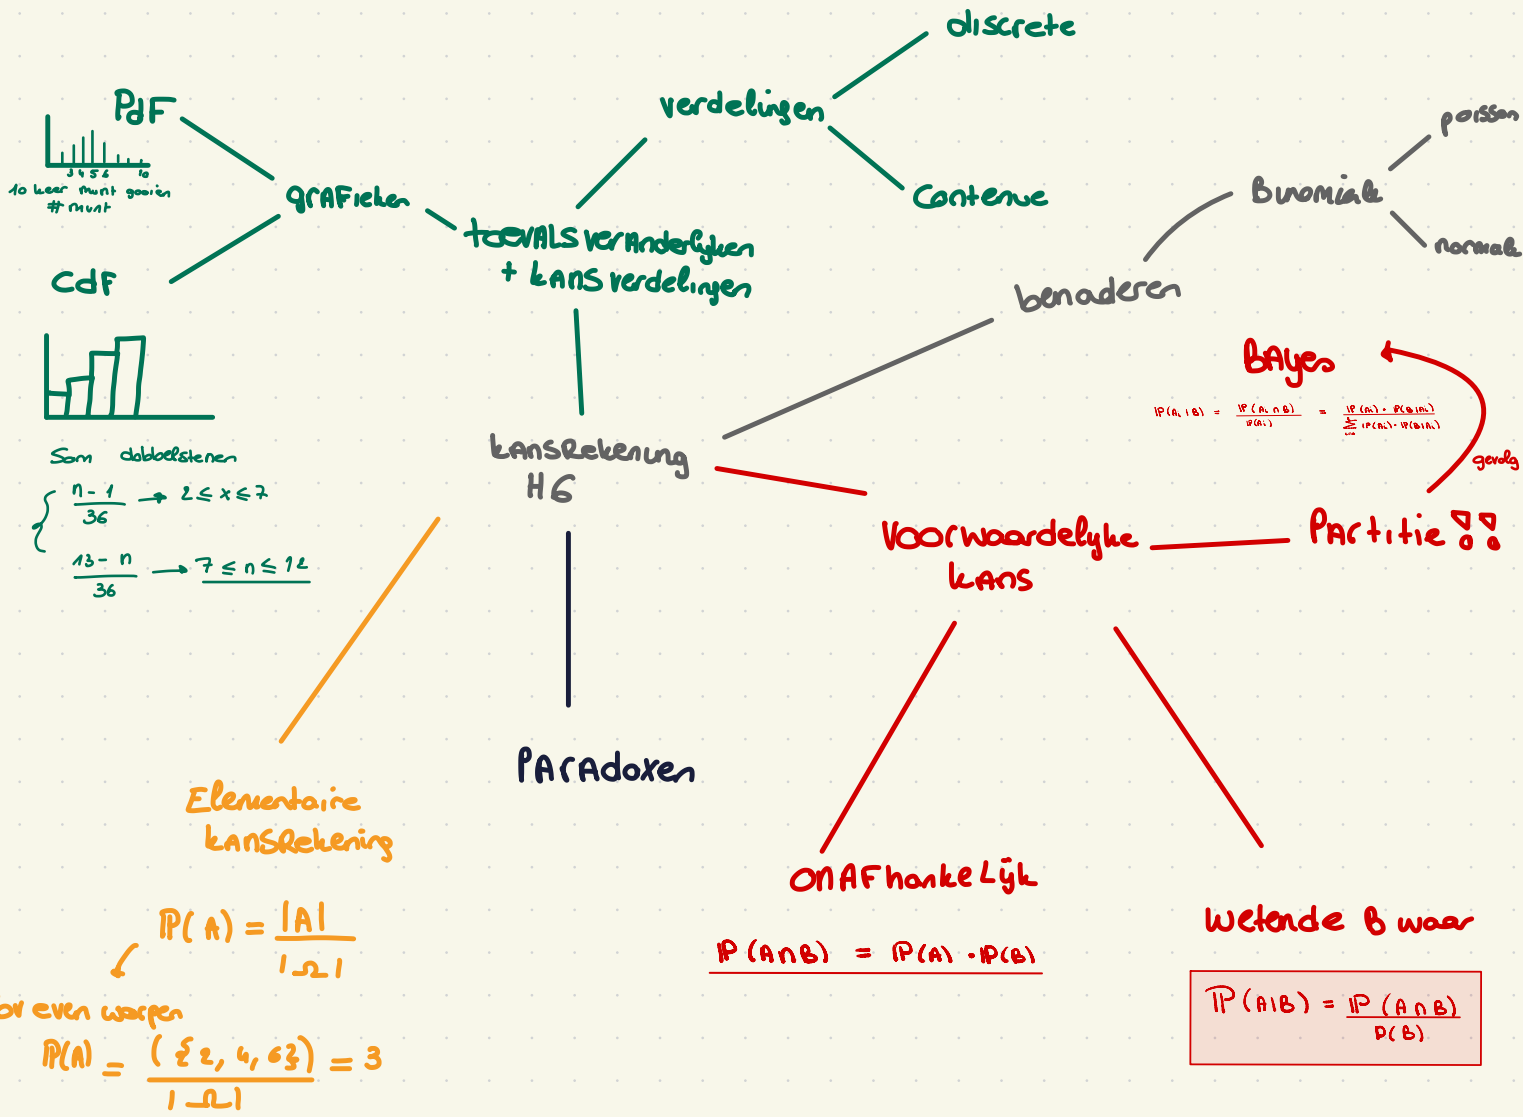 discrete
verdelingen
contenue
PdF
3 4 5 6 10
10 keer munt gooien
# munt
grAFieken
toevALS verAnderlyken
+ kAns verdelingen
CdF
Som dobbelstenen
n - 1 / 36 → 2 ≤ x ≤ 7
13 - n / 36 → 7 ≤ n ≤ 12
poisson
Binomiale
normale
benaderen
BAyes
P(Aᵢ|B) = P(Aᵢ ∩ B) / P(Aᵢ) = P(Aᵢ) · P(B|Aᵢ) / Σ P(Aᵢ) · P(B|Aᵢ)
gevolg
kansRekening
H6
Voorwaardelyke
kAns
PArtitie !!
PArAdoxen
Elementaire
kansRekening
P(A) = |A| / |Ω|
even worpen
P(A) = ({2, 4, 6}) / |Ω| = 3
onAFhankeLijk
P(A∩B) = P(A) · P(B)
Wetende B waar
P(A|B) = P(A∩B) / P(B)